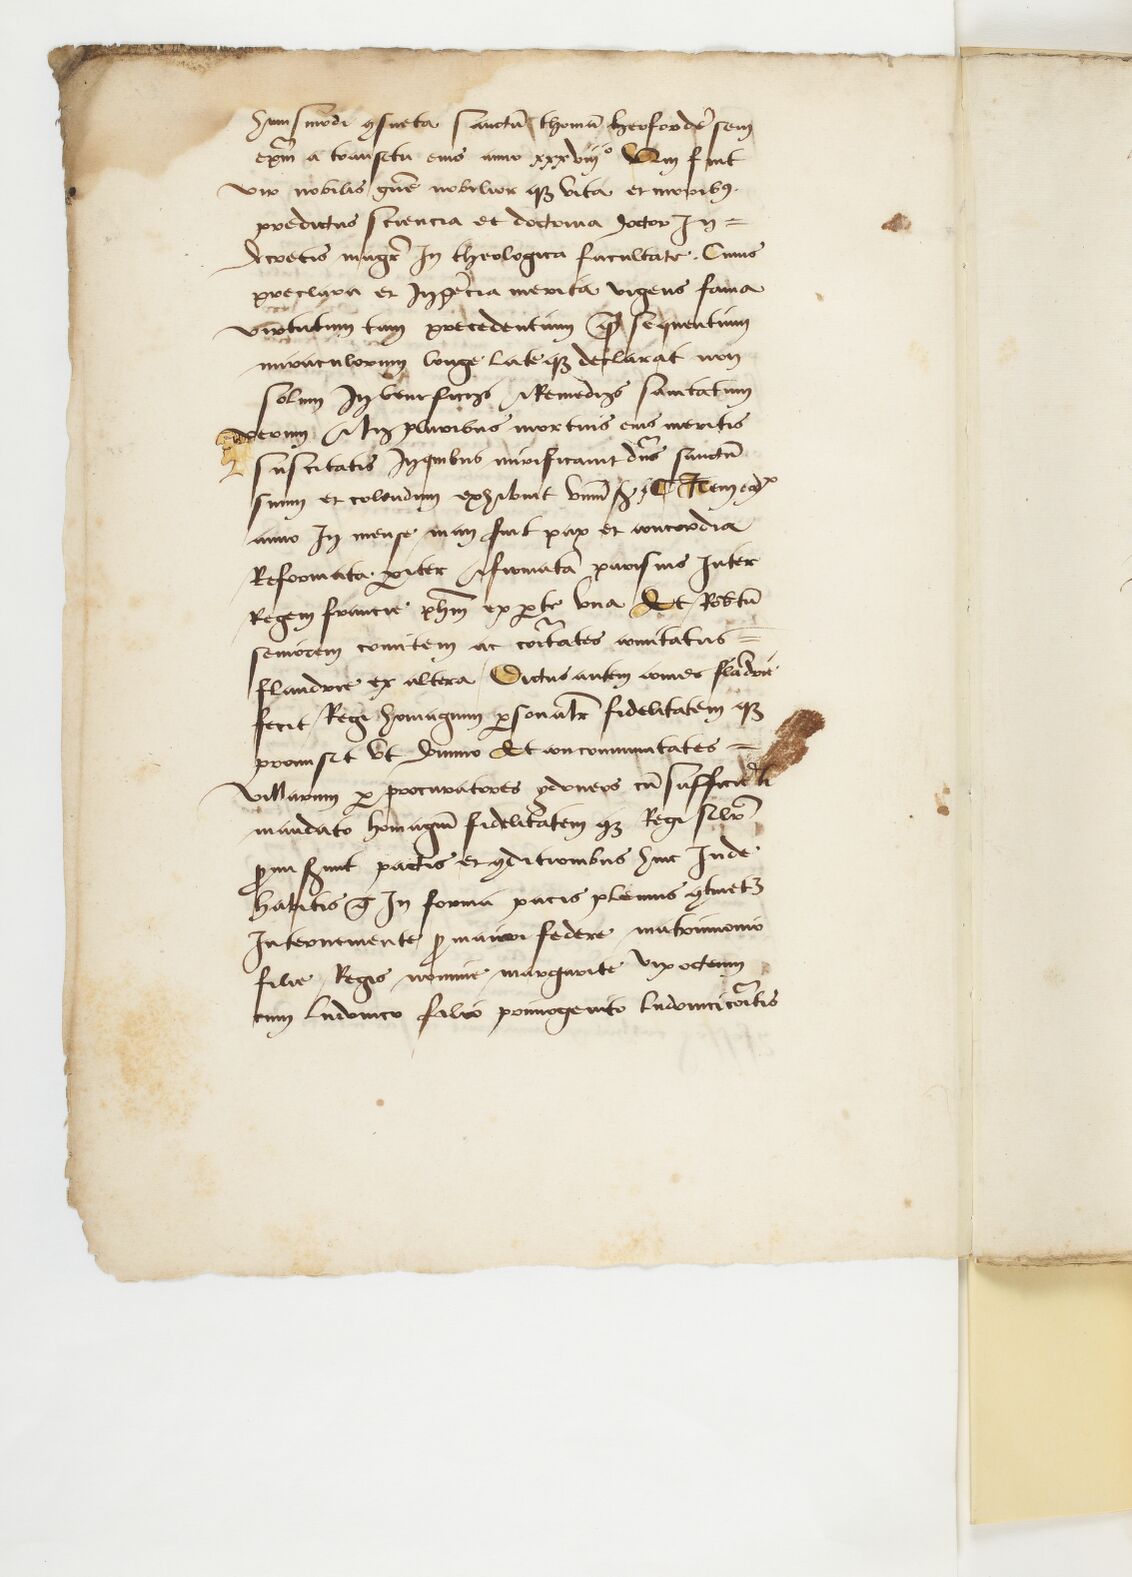 huiusmodi ɔsueta sanctū thomā herfordēsem
ep̄m a transetu eius anno xxxviijº Qui fuit
vir nobilis gn̄e nobilior qȝ vita et moribꝰ
preditus sciencia et doctrina doctor In =
decretis magr̄ In theologica facultate . Cuius
preclara et Ingēcia merita vigens fama
virtutum tam precedentium qȝ sequentium
miraculorum longe lateqȝ declarat non
solum In beneficijs Remedijs sanitatum
verum In pluribus mortuis eius meritis
suscitatis Inquibus mirificauit dn̄s sanctū
suum et colendum exhibuit Item eod̄
anno In mense maij fuit pax et concordia
Reformata ꝑiter firmata parisius Inter
Regem francie ph̄m ex ꝑte vna Et Rob̄tū
seniorem comitem ac cōitates comitatus =
flandrie ex altera Dictus autem comes flādrie
fecit Regi homagium ꝑsonalr̄ fidelitatem qȝ
promiset vt domino Et communitates =
villarum ꝑ procuratores ydoneos cū sufficiēti
mandato homagiū fidelitatem qȝ Regi
promiserunt pactis et ɔditionibus hinc Inde
habitis In forma pacis plenius ɔtinetȝ
Interueniente maiori federe matrimonio
filie Regis nomine margarite
cum ludouico filio primogenito ludouici cōitis